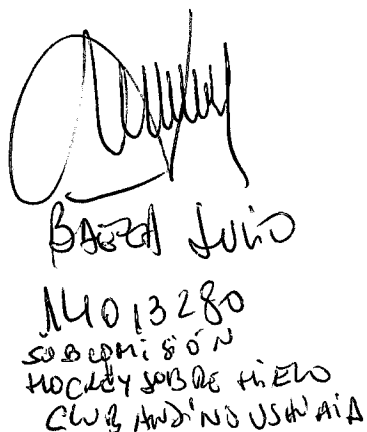 BAEZA JULIO
14013280
SUBCOMISIÓN
HOCKEY SOBRE HIELO
CLUB ANDINO USHUAIA